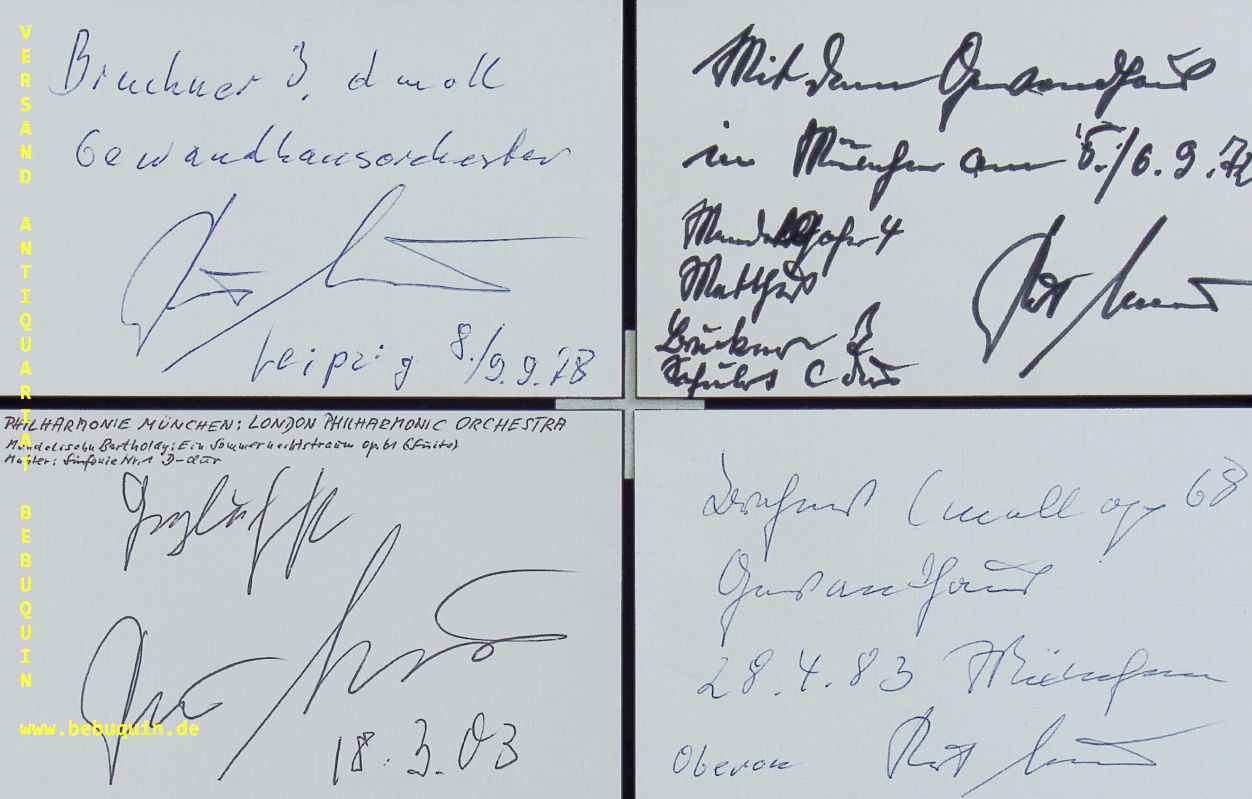 VERSAND ANTIQUARIAT BEBUQUIN
www.bebuquin.de
Bruckner 3. d moll
Gewandhausorchester
Leipzig 8./9.9.78
Mit dem Gewandhaus
in München am 5./6.9.
Matthus
Bruckner 7
Schubert C dur
PHILHARMONIE MÜNCHEN: LONDON PHILHARMONIC ORCHESTRA
Mendelssohn Bartholdy: Ein Sommernachtstraum op. 61 (Suite)
Mahler: Sinfonie Nr. 1 D-dur
18.3.03
C moll op 68
Gewandhaus
28.4.83 München
Oberon
Kurt Masur